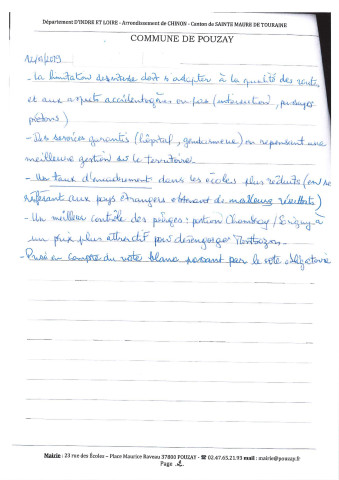 Département d'INDRE ET LOIRE - Arrondissement de CHINON - Canton de SAINTE MAURE DE TOURAINE
COMMUNE DE POUZAY
12/0/2019
- La limitation de vitesse doit s'adapter à la qualité des routes
et aux aspects accidentogènes ou pas (intersection, passages
piétons)
- Des services garantis (hôpital, gendarmerie) en repensant une
meilleure gestion sur le territoire
- Un taux d'encadrement dans les écoles plus réduits (en se
référant aux pays étrangers obtenant de meilleurs résultats)
- Un meilleur contrôle des péages : portion Chambray / Sorigny à
un prix plus attractif pour désengorger Montbazon.
- Prise en compte du vote blanc passant par le vote obligatoire
Mairie : 23 rue des Écoles – Place Maurice Raveau 37800 POUZAY - ☎ 02.47.65.21.93 mail : mairie@pouzay.fr
Page 2